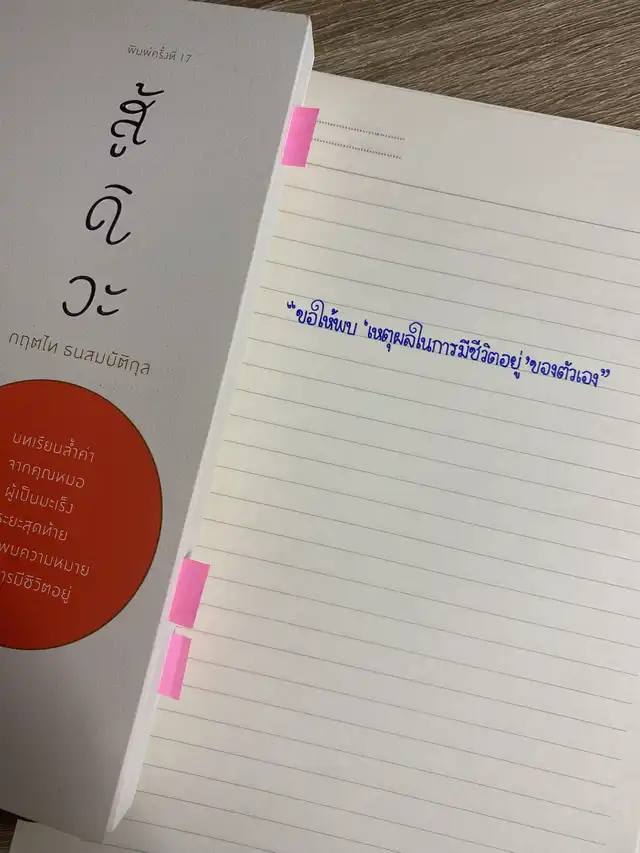 พิมพ์ครั้งที่ 17
สู้
ดิ
วะ
กฤตไท ธนสมบัติกุล
บทเรียนล้ำค่า
จากคุณหมอ
ผู้เป็นมะเร็ง
ระยะสุดท้าย
พบความหมาย
การมีชีวิตอยู่
“ขอให้พบ ‘เหตุผลในการมีชีวิตอยู่’ของตัวเอง”